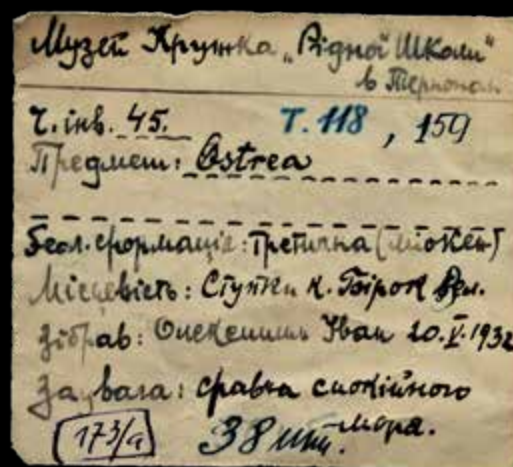 Музей Кружка „Рідної Школи"
в Тернополі
Ч. інв. 45. Т. 118, 159
Предмет: Ostrea
Геол. формація: Третична (міоцен)
Місцевість: Ступки к. Бірок Вел.
Зібрав: Олексишин Іван 20.V.1932
Заввага: фавна спокійного
моря.
173/а 38 шт.